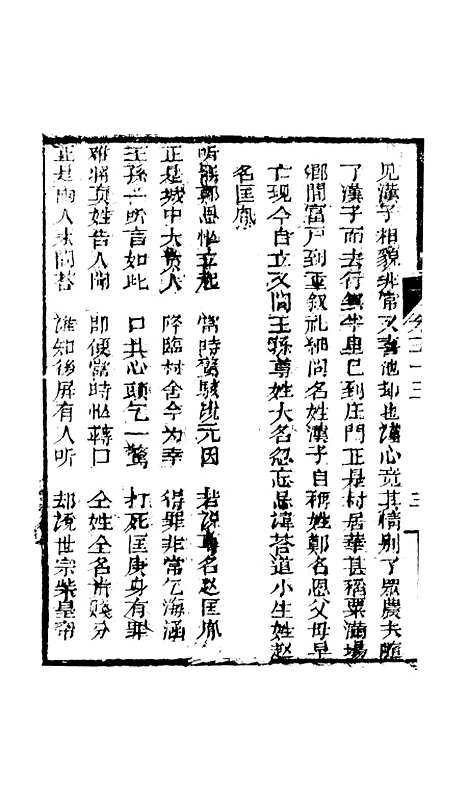 见漢子相貌非常又喜他却也謹心竟其情别了眾農夫随
了漢子而去行無半里已到庄門正是村居華甚稻粟滿場
鄉間富户到重叙礼鄉問名姓漢子自稱姓鄭名恩父母早
亡现今自立又問王孫尊姓大名忽忘忌諱荅道小生姓赵
名匡胤
听説鄭恩怅立起 當時驚駭説元因 若说尊名赵匡胤
正是城中大贵人 降臨村舍今为幸 得罪非常乞海涵
王孫一听言如此 口共心頭乞一驚 打死匡庚身有罪
难将项姓告人聞 即便當時怅轉口 仝姓仝名片賤分
正是两人来问荅 谁知後屏有人听 却说世宗柴皇帝
卷二十三
三